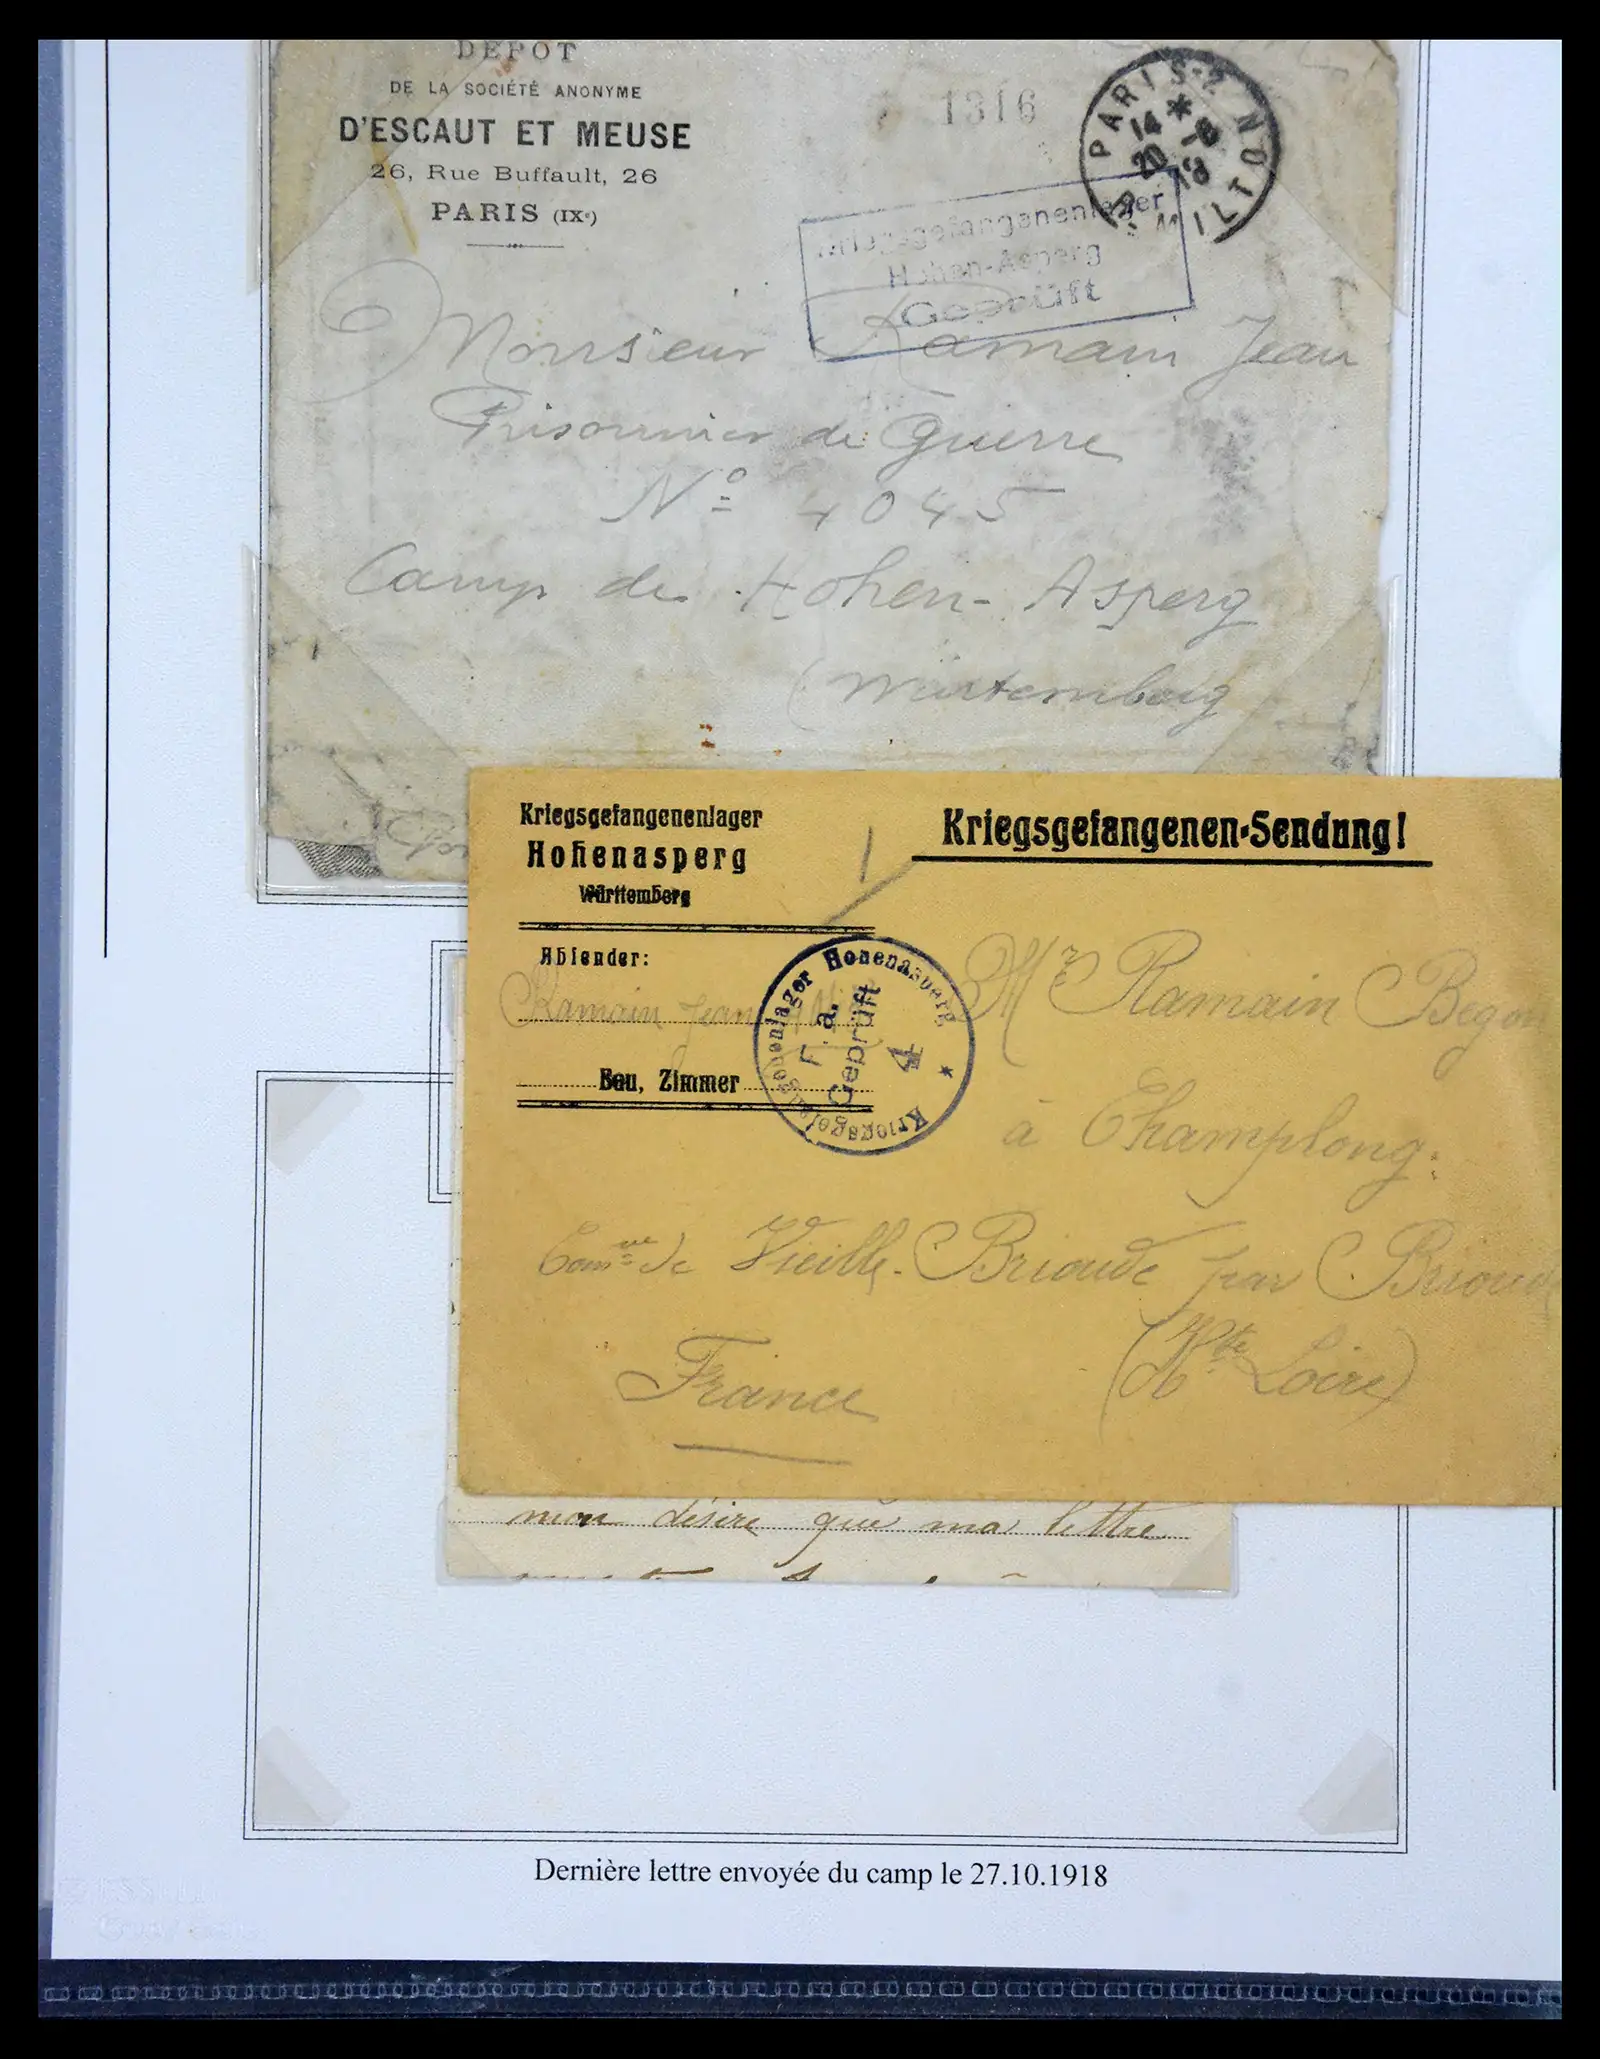 DEPOT
DE LA SOCIÉTÉ ANONYME
D'ESCAUT ET MEUSE
26, Rue Buffault, 26
PARIS (IXe)
1316
PARIS-2 NON MILIT
14 *
20 -8
18
Kriegsgefangenenlager
Hohen-Asperg
Geprüft
Monsieur Ramain Jean
Prisonnier de Guerre
No 4045
Camp de Hohen-Asperg
(Wurtemberg
Kriegsgefangenenlager
Hohenasperg
Württemberg
Kriegsgefangenen-Sendung!
Absender:
Ramain Jean
Bau, Zimmer
Kriegsgefangenenlager Hohenasperg *
F. a.
Geprüft
4
Mr Ramain Begon
à Champlong.
Comne de Vieille-Brioude par Brioude
(Hte Loire)
France
mon désire que ma lettre
Dernière lettre envoyée du camp le 27.10.1918